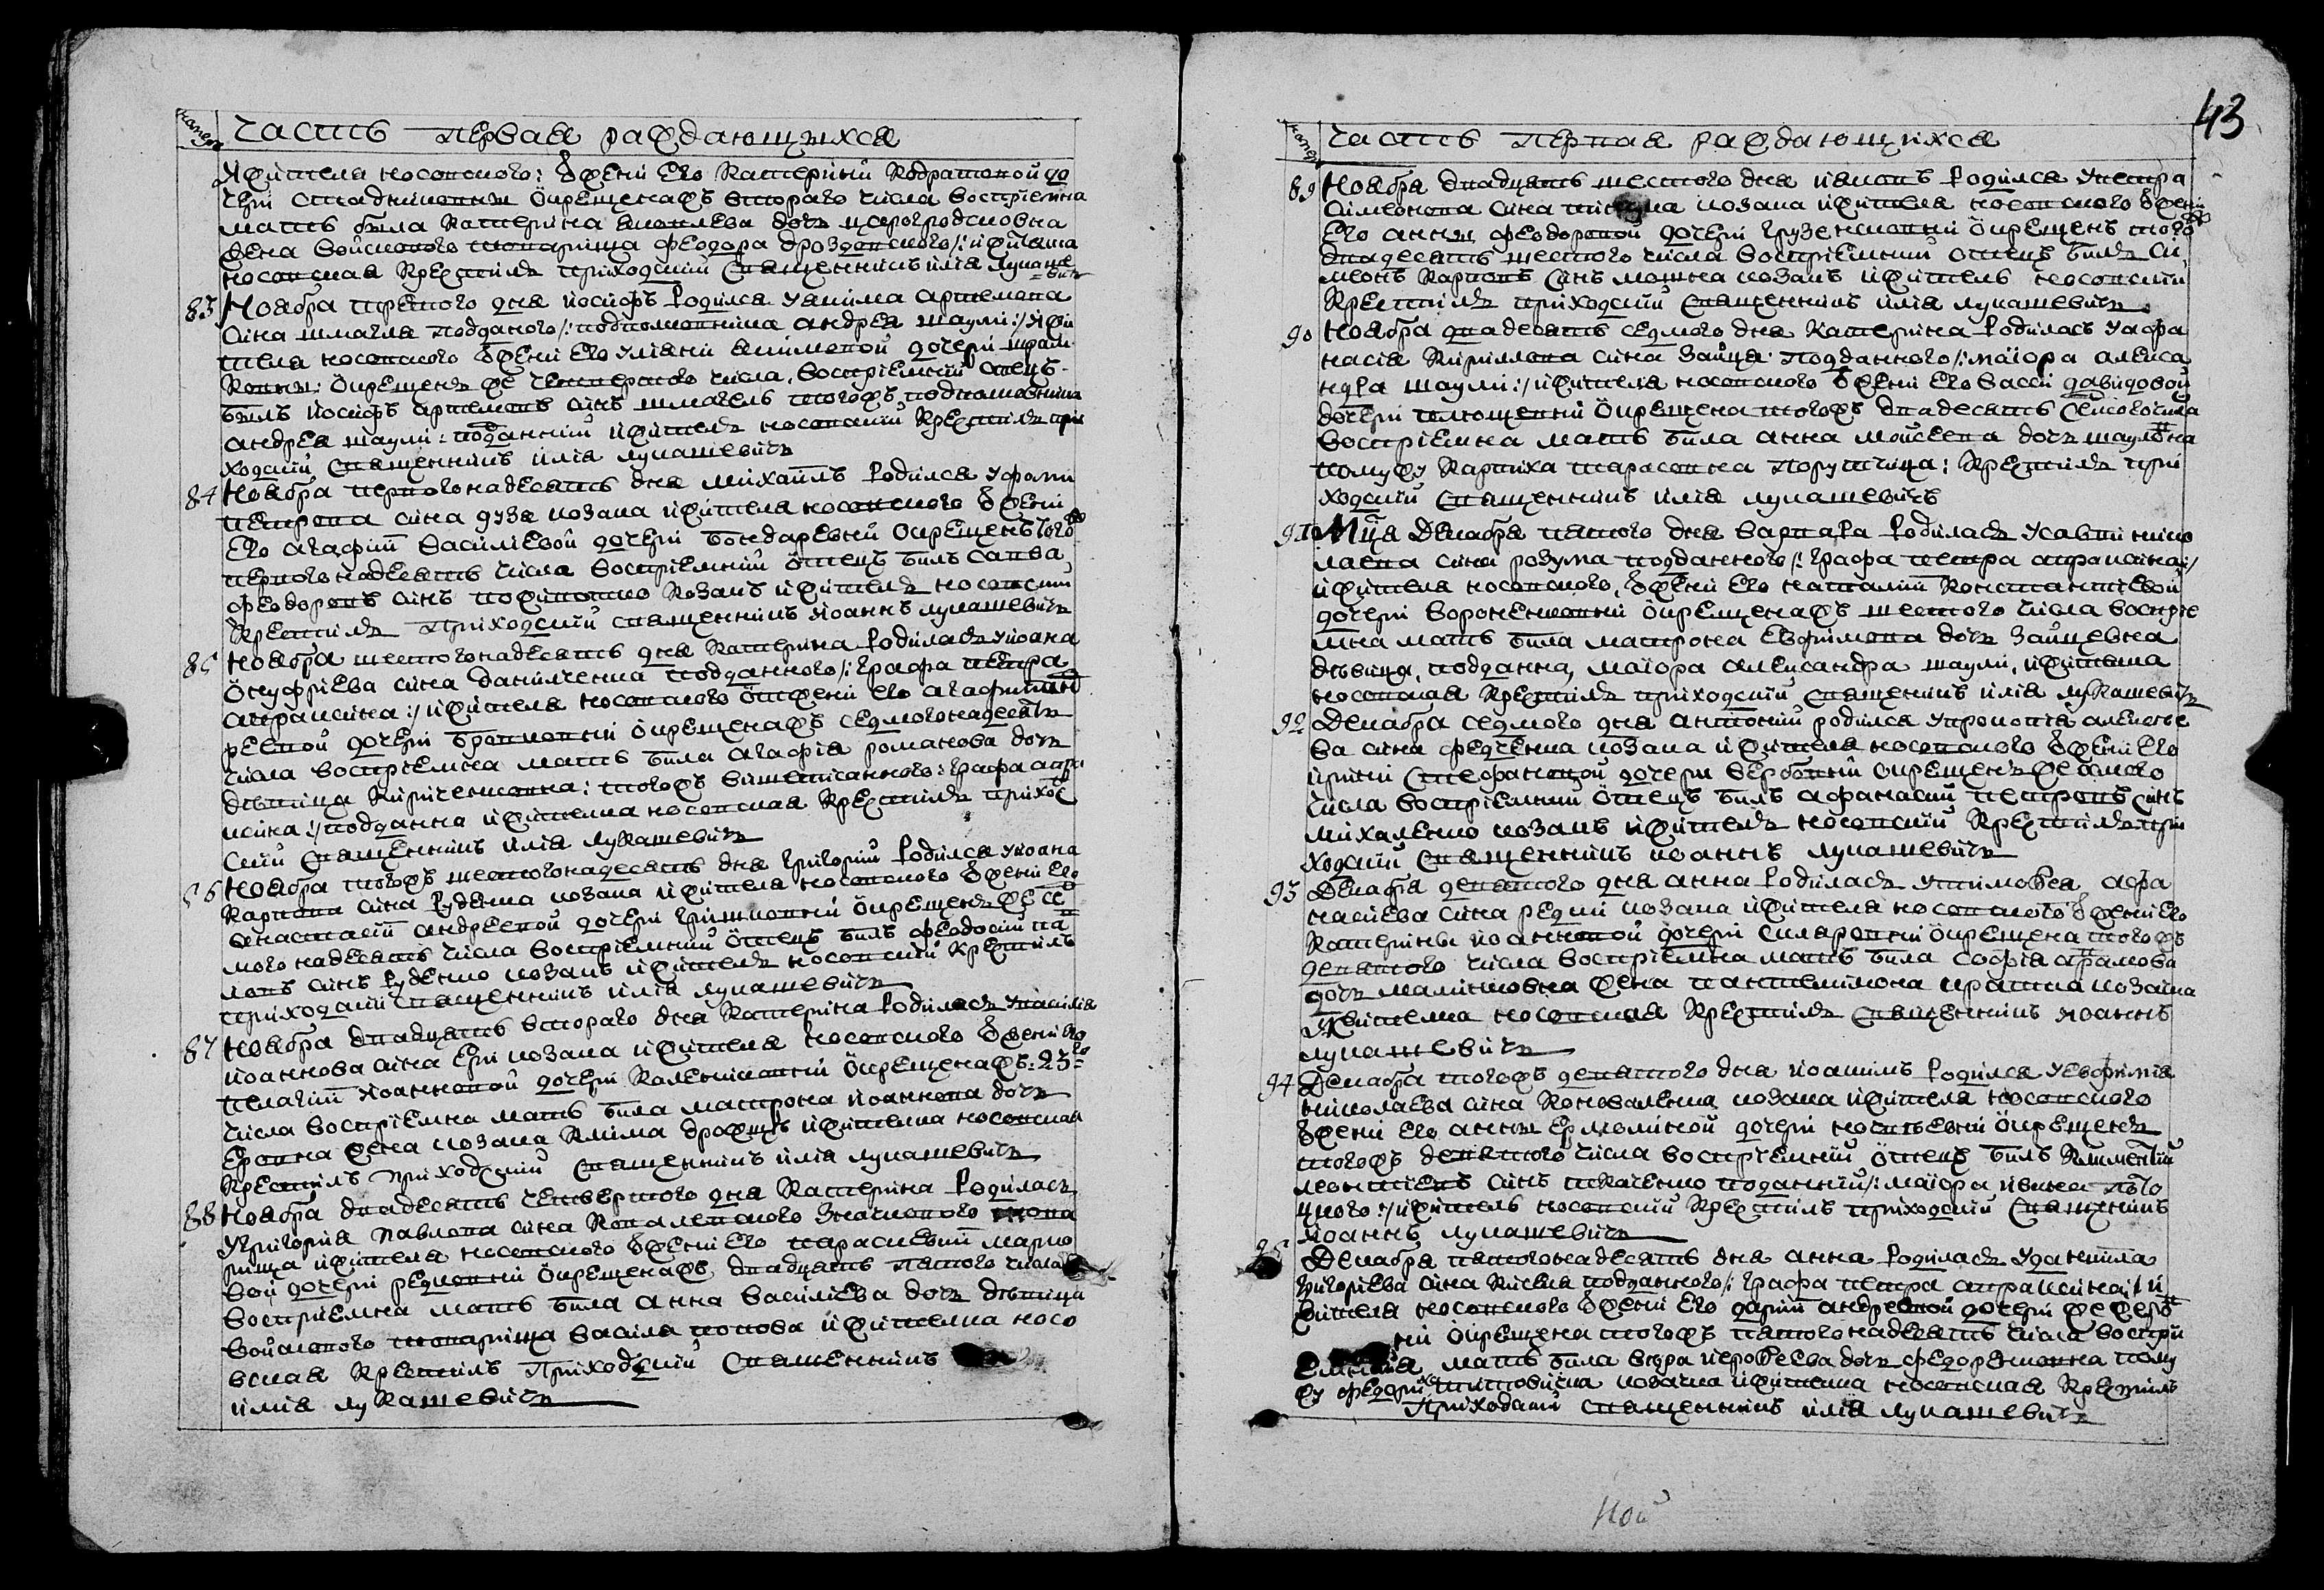 Часть первая раждающихся
жителя носовского: ѿ жени его катерини кодратовой до
чери стадниковни окрещенажъ второго числа восприемна
мать била катерина яковлева дочъ
жена войскового товарища феодора дроздовского/: жителка
носовская крестилъ приходскій священникъ илія лукаше
вичъ
83 Ноября третого дня іосифъ родился уякима артемова
сина шмагля подданого/: подполковника андрея шаули:/ жи
теля носовского ѿ жени его уляни якимовой дочери
окрещенъ же четвертого числа, восприемній отецъ
билъ іосифъ артемовъ синъ шмагель тогожъ подполковника
андрея шаули: подданній жителъ носовскій крестилъ при
ходскій священникъ илія лукашевичъ
84 Ноября первогонадесять дня михаилъ родился у
петрова сина дузя козака жителя носовского ѿ жени
его агафіи василіевой дочери бондаревни окрещенъ того же
первогонадесять числа восприемній отецъ билъ савва
феодоровъ синъ козакъ жителъ носовскій
крестилъ приходскій священникъ іоаннъ лукашевичъ
85 ноября шестогонадесять дня катерина родиласъ уіоана
онуфріева сина данилченка подданного/: графа петра
апраксина:/ жителя носовского ѿ жени его агафіи
реевой дочери окрещенажъ седмогонадесять
числа восприемна мать била агафія романова дочъ
девица кириченковна: тогожъ вишеписанного: графа апра
ксина:/ подданна жителка носовская крестилъ приход
скій священникъ илія лукашевичъ
86 Ноября тогожъ шестогонадесять дня григорій родился уіоана
карпова сина руденка козака жителя носовского ѿ жени его
анастасіи андреевой дочери гришковни окрещенъ же сед
могонадесять числа восприемній отецъ билъ феодосій па
вловъ синъ руденко козакъ жителъ носовскій крестилъ
приходскій священникъ илія лукашевичъ
87 Ноября двадцять второго дня катерина родиласъ увасилія
іоаннова сина ери козака жителя носовского ѿ жени его
пелагіи іоанновой дочери калениковни окрещенажъ: 23го
числа восприемна мать била матрона іоаннова дочъ
еровна жена козака клима драфцъ жителка носовская
крестилъ приходскій священникъ илія лукашевичъ
88 Ноября двадесять четвертого дня катерина родиласъ
угригорія павлова сина ковалевского значкового това
рища жителя носовского ѿ жени его параскевіи марко
вой дочери редковни окрещенажъ двадцять пятого числа
восприемна мать била анна василіева дочъ девица
войскового товарища василя попова жителка носо
вская крестилъ приходскій священникъ
илія лукашевичъ
43
Часть первая раждающихся
89 Ноября двадцять шестого дня іаковъ родился упетра
симеонова сина козака жителя носовского ѿ жени
его анни феодоровой дочери грузенковни окрещенъ того жъ
двадесять шестого числа восприемній отецъ билъ си
меонъ карповъ синъ мошка козакъ жителъ носовскій
крестилъ приходскій священникъ илія лукашевичъ
90 Ноября двадесять седмого дня катерина родиласъ уафа
насія кириллова сина зайця подданного/: маіора алекса
ндра шаули:/ жителя носовского ѿ жени его васси давидовой
дочери тимошенки окрещена тогожъ двадесять семого числа
восприемна мать била анна мойсеева дочъ
помужу карпиха тарасовна поручица: крестилъ при
ходскій священникъ илія лукашевичъ
91 Мца Декабря пятого дня варвара родиласъ усавви нико
лаева сина розума подданного/: графа петра апраксина:/
жителя носовского, ѿ жени его наталіи константіевой
дочери воронковни окрещенажъ шестого числа восприе
мна мать била матрона евфимова дочъ зайцевна
девица, подданна, маіора александра шаули, жителка
носовская крестилъ приходскій священникъ илія лукашевичъ
92 Декабря седмого дня антоній родился упрокопія алексее
ва сина федченка козака жителя носовского ѿ жени его
ирини стефановой дочери вербовни окрещенъ же осмого
числа восприемній отецъ билъ афанасій петровъ синъ
михаленко козакъ жителъ носовскій крестилъ при
ходскій священникъ іоаннъ лукашевичъ
93 Декабря девятого дня анна родиласъ утимофея афа
насіева сина редки козака жителя носовского ѿ жени его
катерины іоанновой дочери окрещена тогожъ
девятого числа восприемна мать била софія абрамова
дочъ малишовна жена пантелимона козачка
жителка носовская крестилъ священникъ іоаннъ
лукашевичъ
94 Декабря тогожъ девятого дня іоакимъ родился уевфимія
николаева сина коноваленка козака жителя носовского
ѿ жени его анны ермолиной дочери окрещенъ
тогожъ девятого числа восприемній отецъ билъ климентій
леонтіевъ синъ ткаченко подданній/: маіора ивана
:/ жителъ носовскій крестилъ приходскій священникъ
іоаннъ лукашевичъ
95 Декабря пятогонадесять дня анна родиласъ уданіила
григоріева сина кисела подданного/: графа петра апраксина:/ и
жителя носовского ѿ жени его даріи андреевой дочери
ни окрещена тогожъ пятогонадесять числа воспри
емная мать била вера іерофеева дочъ федоренковна пому
жу козачка жителка носовская крестилъ
приходскій священникъ илія лукашевичъ